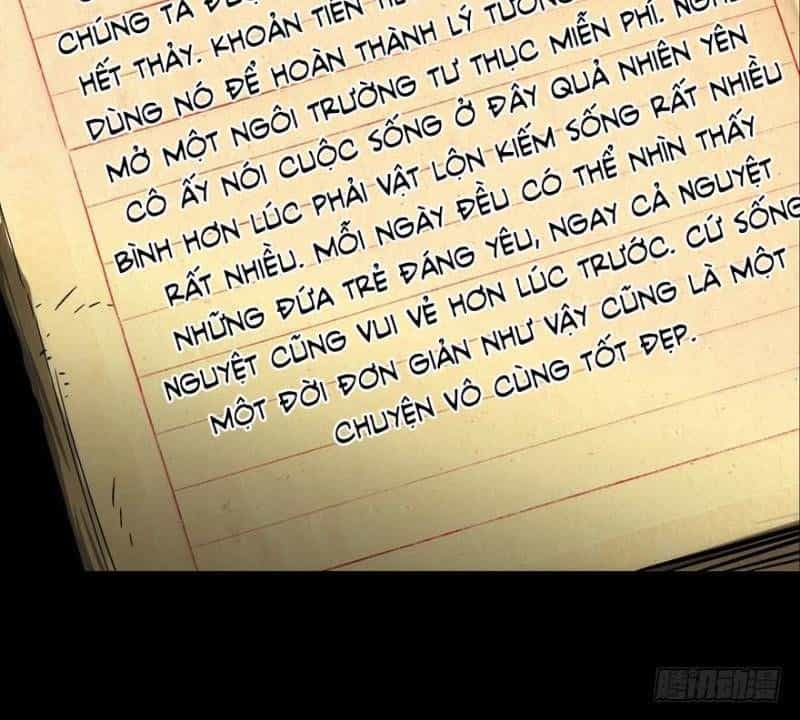 CHÚNG TA
HẾT THẢY. KHOẢN TIỀN
DÙNG NÓ ĐỂ HOÀN THÀNH LÝ TƯỞNG
MỞ MỘT NGÔI TRƯỜNG TƯ THỤC MIỄN PHÍ.
CÔ ẤY NÓI CUỘC SỐNG Ở ĐÂY QUẢ NHIÊN YÊN
BÌNH HƠN LÚC PHẢI VẬT LỘN KIẾM SỐNG RẤT NHIỀU
RẤT NHIỀU. MỖI NGÀY ĐỀU CÓ THỂ NHÌN THẤY
NHỮNG ĐỨA TRẺ ĐÁNG YÊU, NGAY CẢ NGUYỆT
NGUYỆT CŨNG VUI VẺ HƠN LÚC TRƯỚC. CỨ SỐNG
MỘT ĐỜI ĐƠN GIẢN NHƯ VẬY CŨNG LÀ MỘT
CHUYỆN VÔ CÙNG TỐT ĐẸP.
腾讯动漫